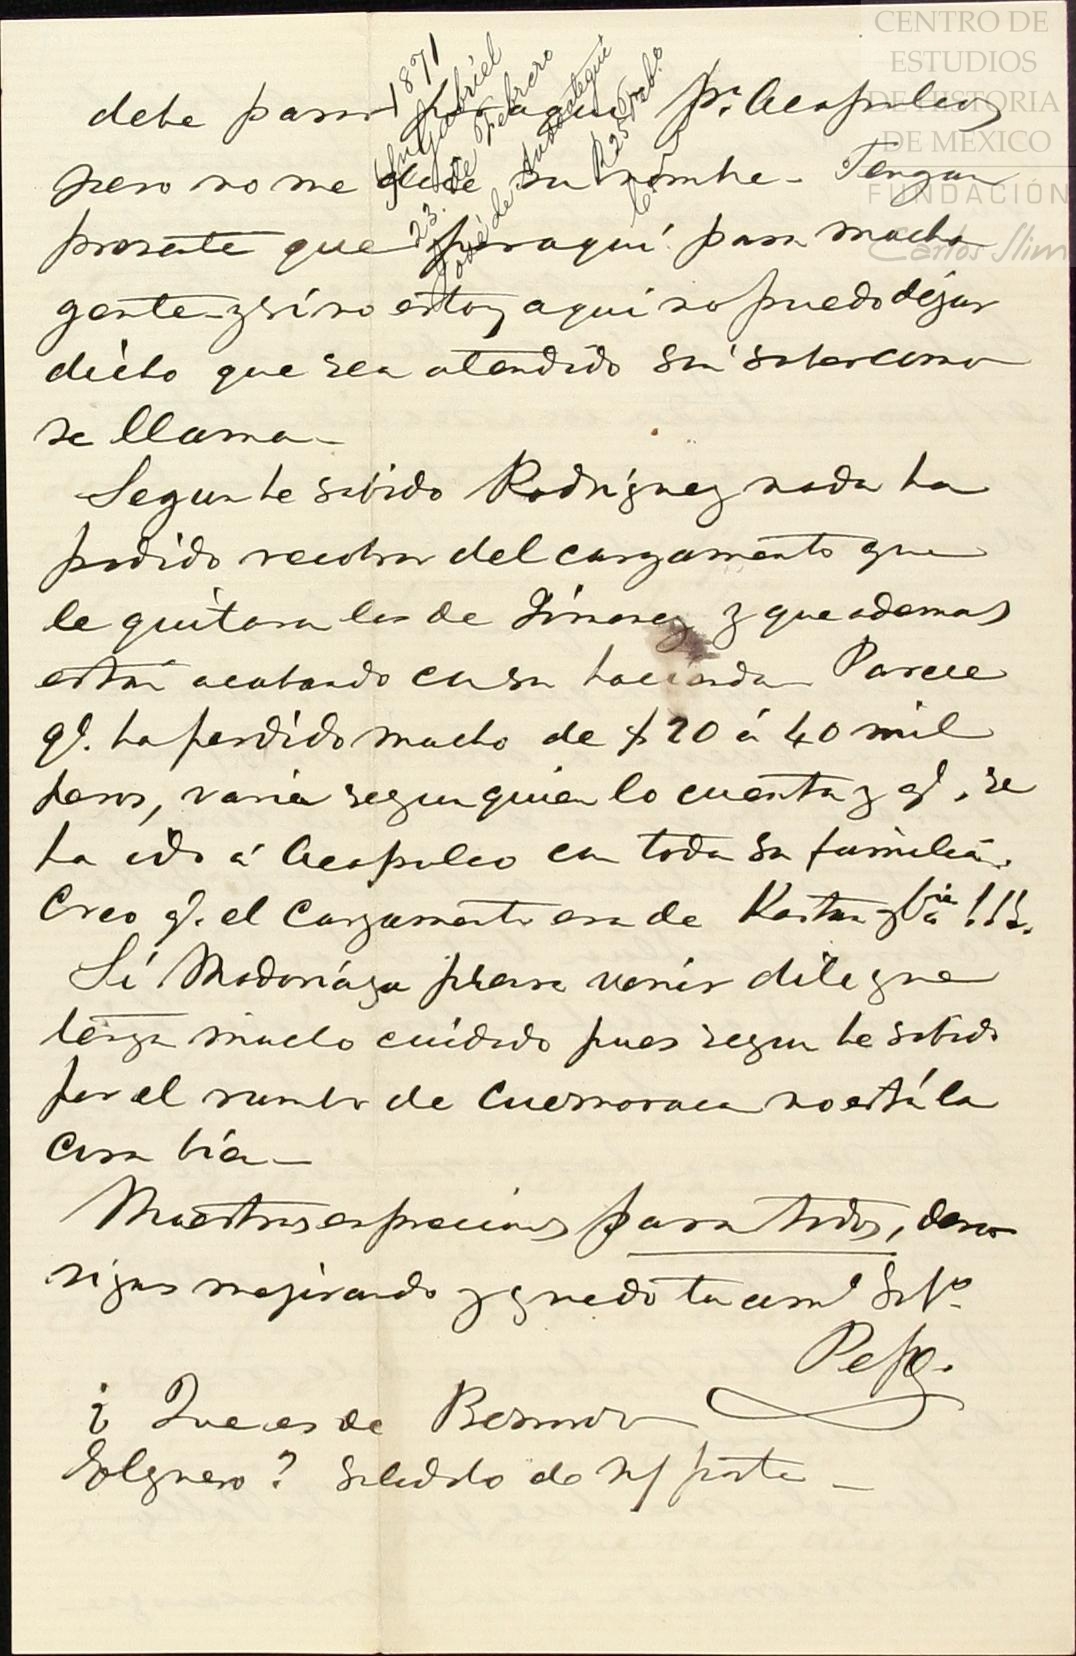 CENTRO DE
ESTUDIOS
DE HISTORIA
DE MEXICO
FUNDACIÓN
Carlos Slim
1871
San Gabriel
23. de Febrero
José de
R 25 Feb.o
debe pasar por aqui p.a Acapulco,
pero no me dice su nombre - Tengan
presente que por aquí pasa mucha
gente y si no estoy aquí no puedo dejar
dicho que sea atendido sin saber como
se llama -
Segun he sabido Rodriguez nada ha
podido recobrar del cargamento que
le quitaron los de Jimenez y que ademas
están acabando con su hacienda - Parece
q.e ha perdido mucho de $20 á 40 mil
pesos, varia segun quien lo cuenta y q.e se
ha ido á Acapulco con toda su familia.
Creo q.e el cargamento era de Kastan y Cia !!!.
Si Madariága piensa venir dile que
tenga mucho cuidado pues segun he sabido
por el rumbo de Cuernavaca no está la
cosa bien -
Muestras espresiones para todos, deseo
sigas mejorando y quedo tu am.o
Pepe.
¿ Que es de
Holguero ? Saludalo de m/ parte -